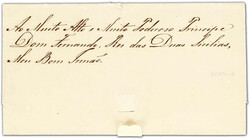 Ao Muito Alto e Muito Poderoso Principe
Dom Fernando, Rei das Duas Sicilias,
Meu Bom Irmão.